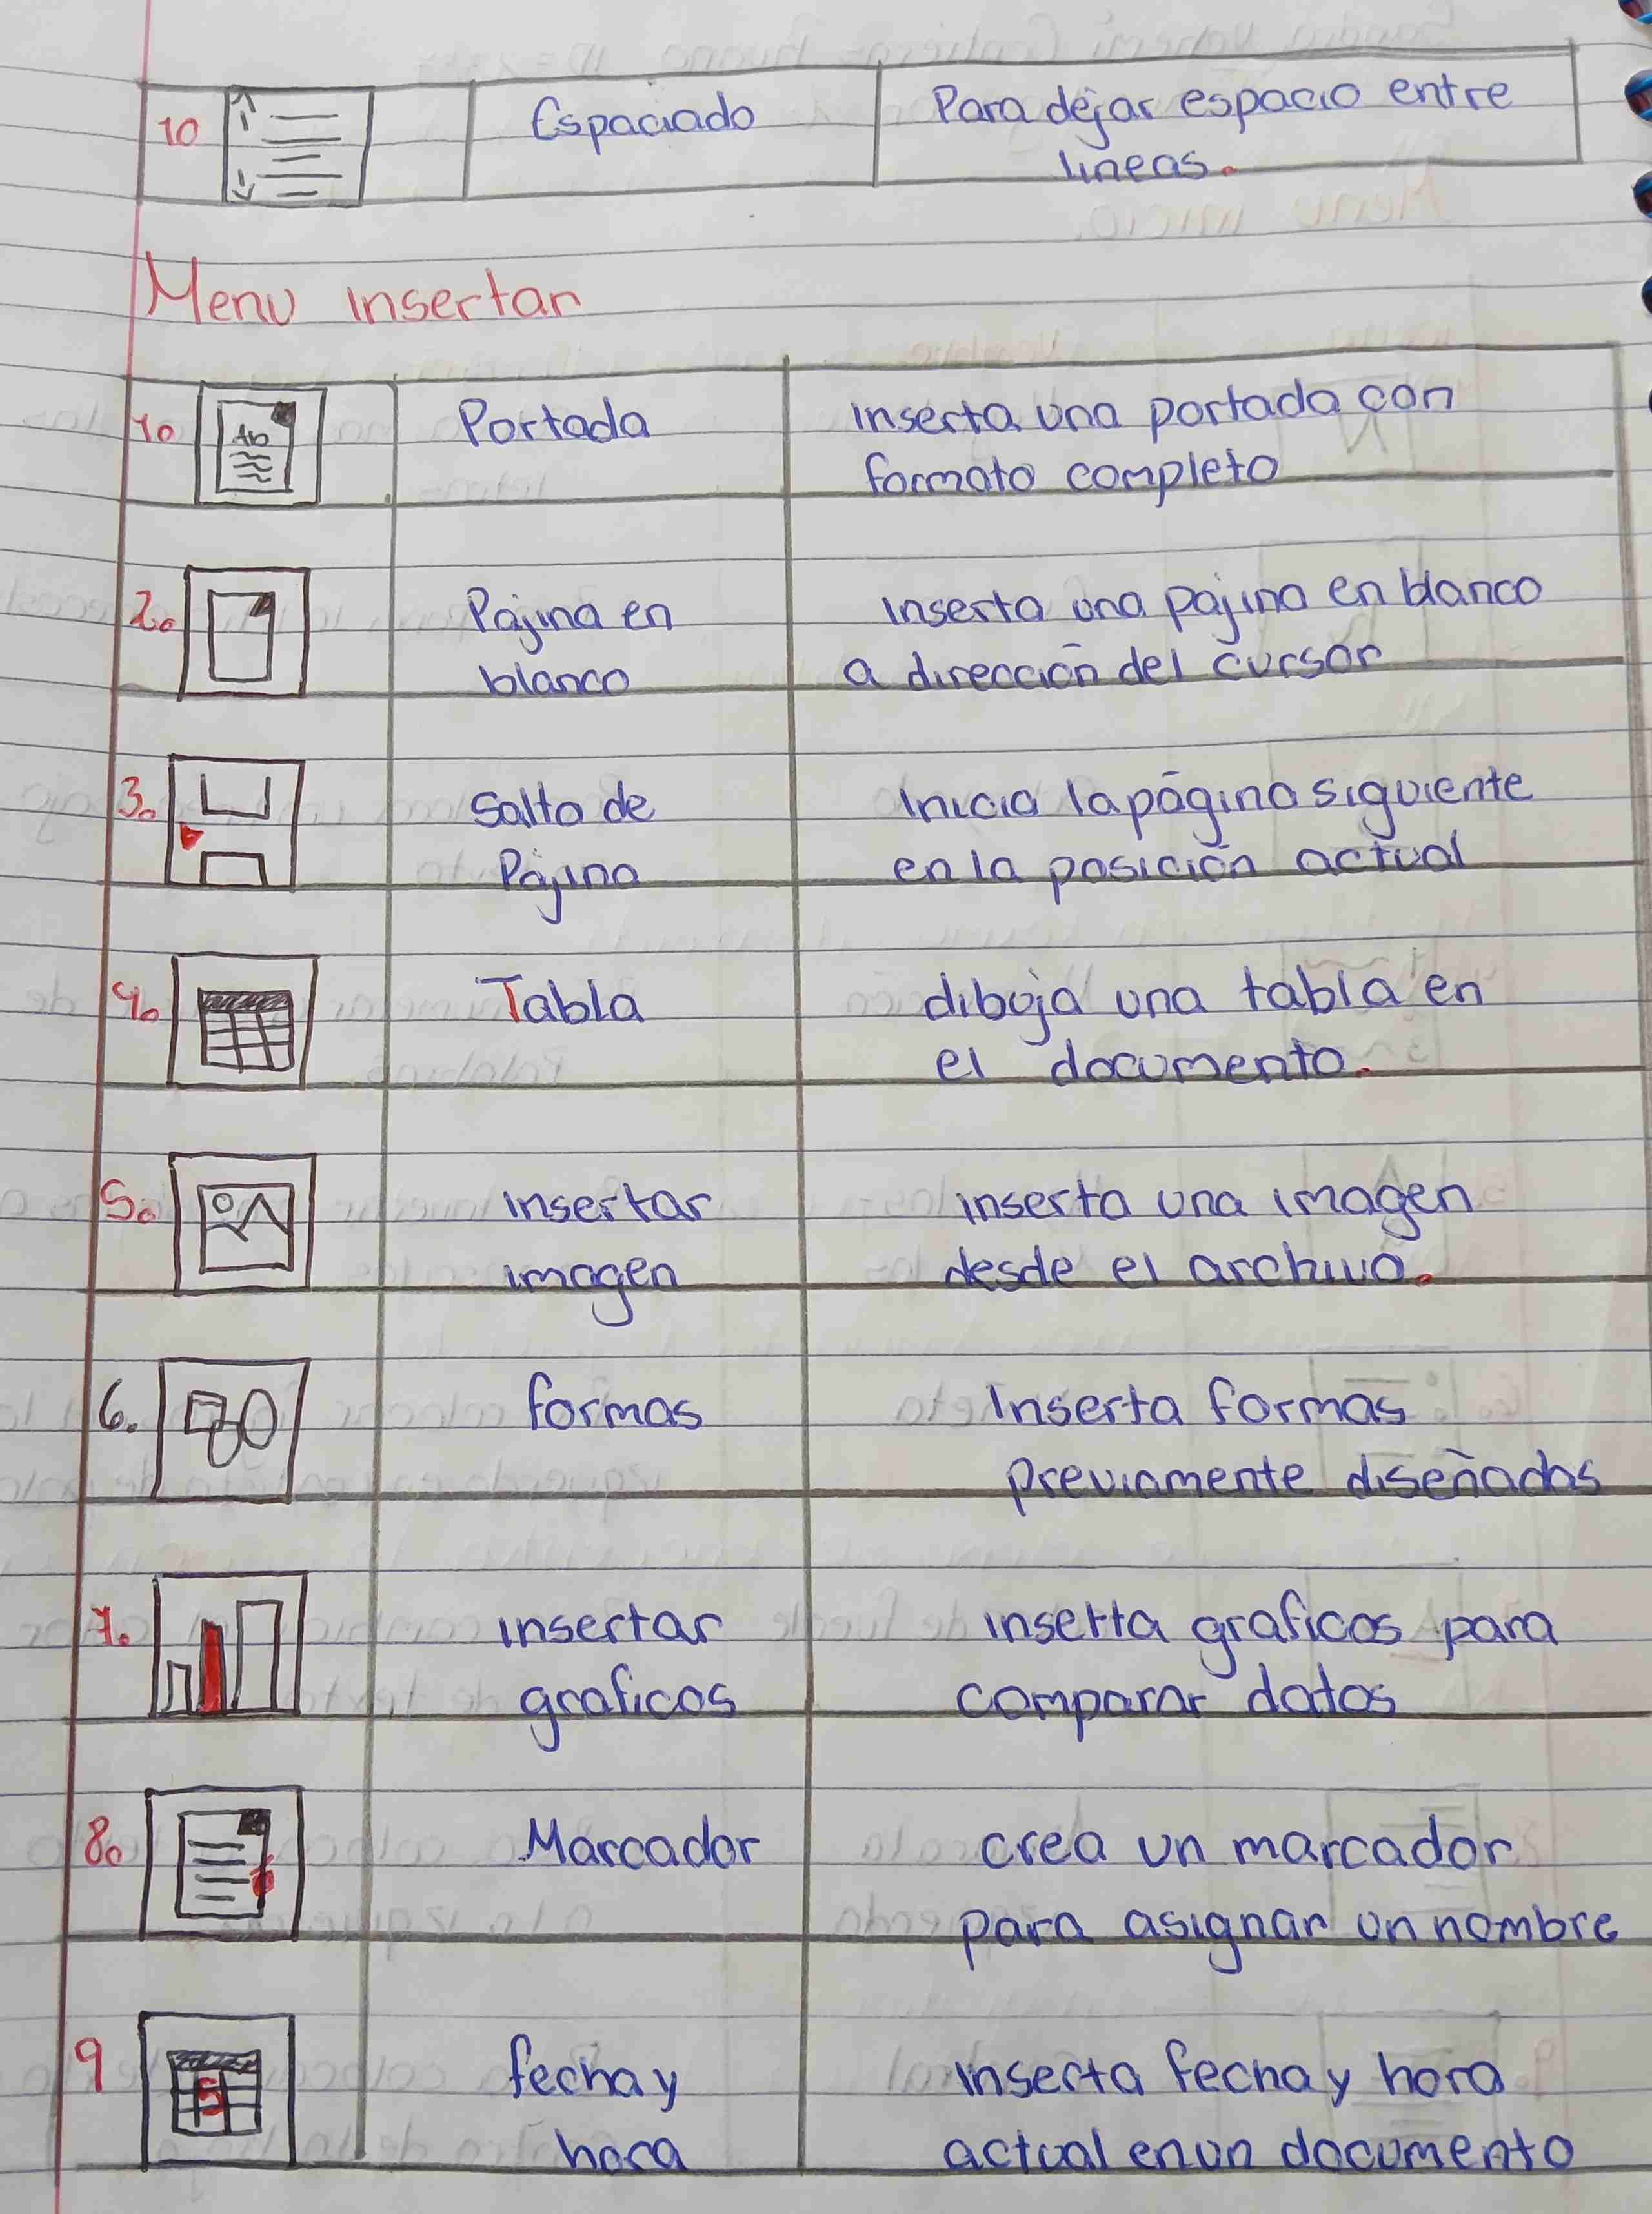 10 Espaciado Para dejar espacio entre
lineas.
Menu insertar
1. Portada inserta una portada con
formato completo
2. Pajina en inserta una pajina en blanco
blanco a dirección del cursor
3. Salto de inicia la página siguiente
Pajina en la posición actual
4. Tabla dibuja una tabla en
el documento.
5. insertar inserta una imagen
imagen desde el archivo.
6. formas Inserta formas
previamente diseñadas
7. insertar inserta graficos para
graficos comparar datos
8. Marcador crea un marcador
para asignar un nombre
9 5 fecha y inserta fecha y hora
hora actual en un documento